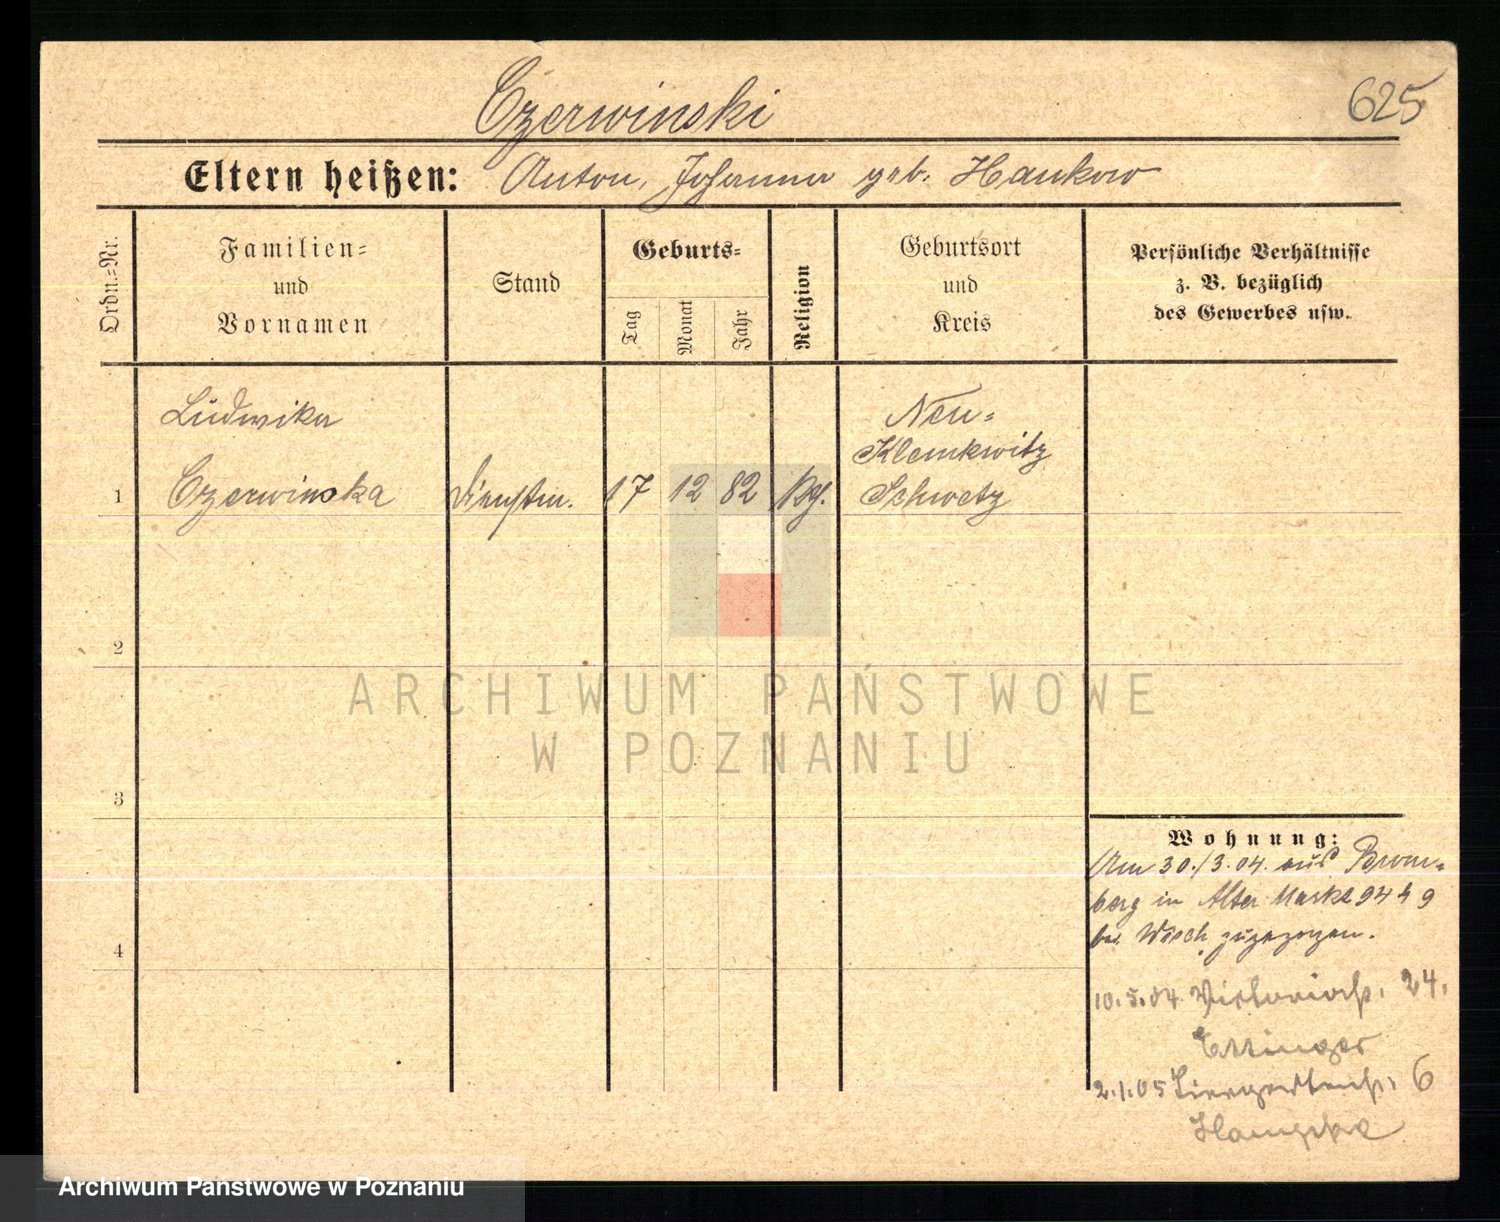 625
Czerwinski
Eltern heißen: Anton, Johanna geb. Hankow
Ordn.=Nr.
Familien=
und
Vornamen
Stand
Geburts=
Tag
Monat
Jahr
Religion
Geburtsort
und
Kreis
Persönliche Verhältnisse
z. B. bezüglich
des Gewerbes usw.
Ludwika
Neu=
Klemkwitz
1 Czerwinska Dienstm. 17 12 82 Schwetz
2
3
4
Wohnung:
Am 30./3.04. aus Brom=
berg in Alter Markt 94
bei zugezogen.
10.5.04 Victoriastr. 24.
Ettinger
2.1.05 Tiergartenstr. 6
ARCHIWUM PAŃSTWOWE
W POZNANIU
Archiwum Państwowe w Poznaniu